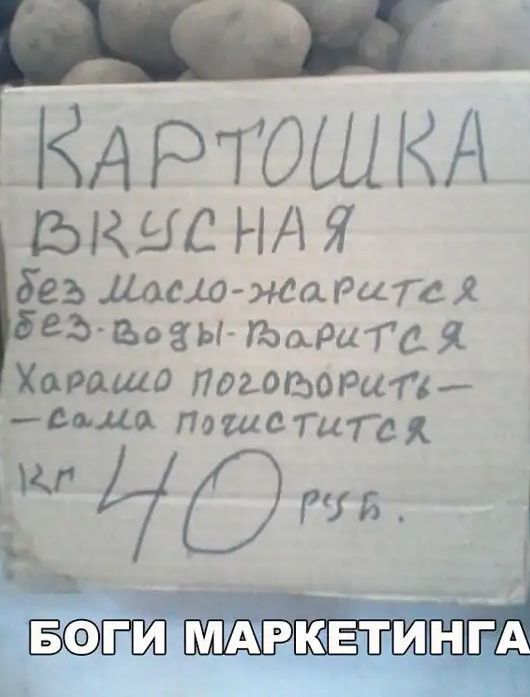 КАРТОШКА
ВКУСНАЯ
без масло-жарится
без-воды-варится
Харашо поговорить-
-сама почистится
кг 40 руб.
БОГИ МАРКЕТИНГА